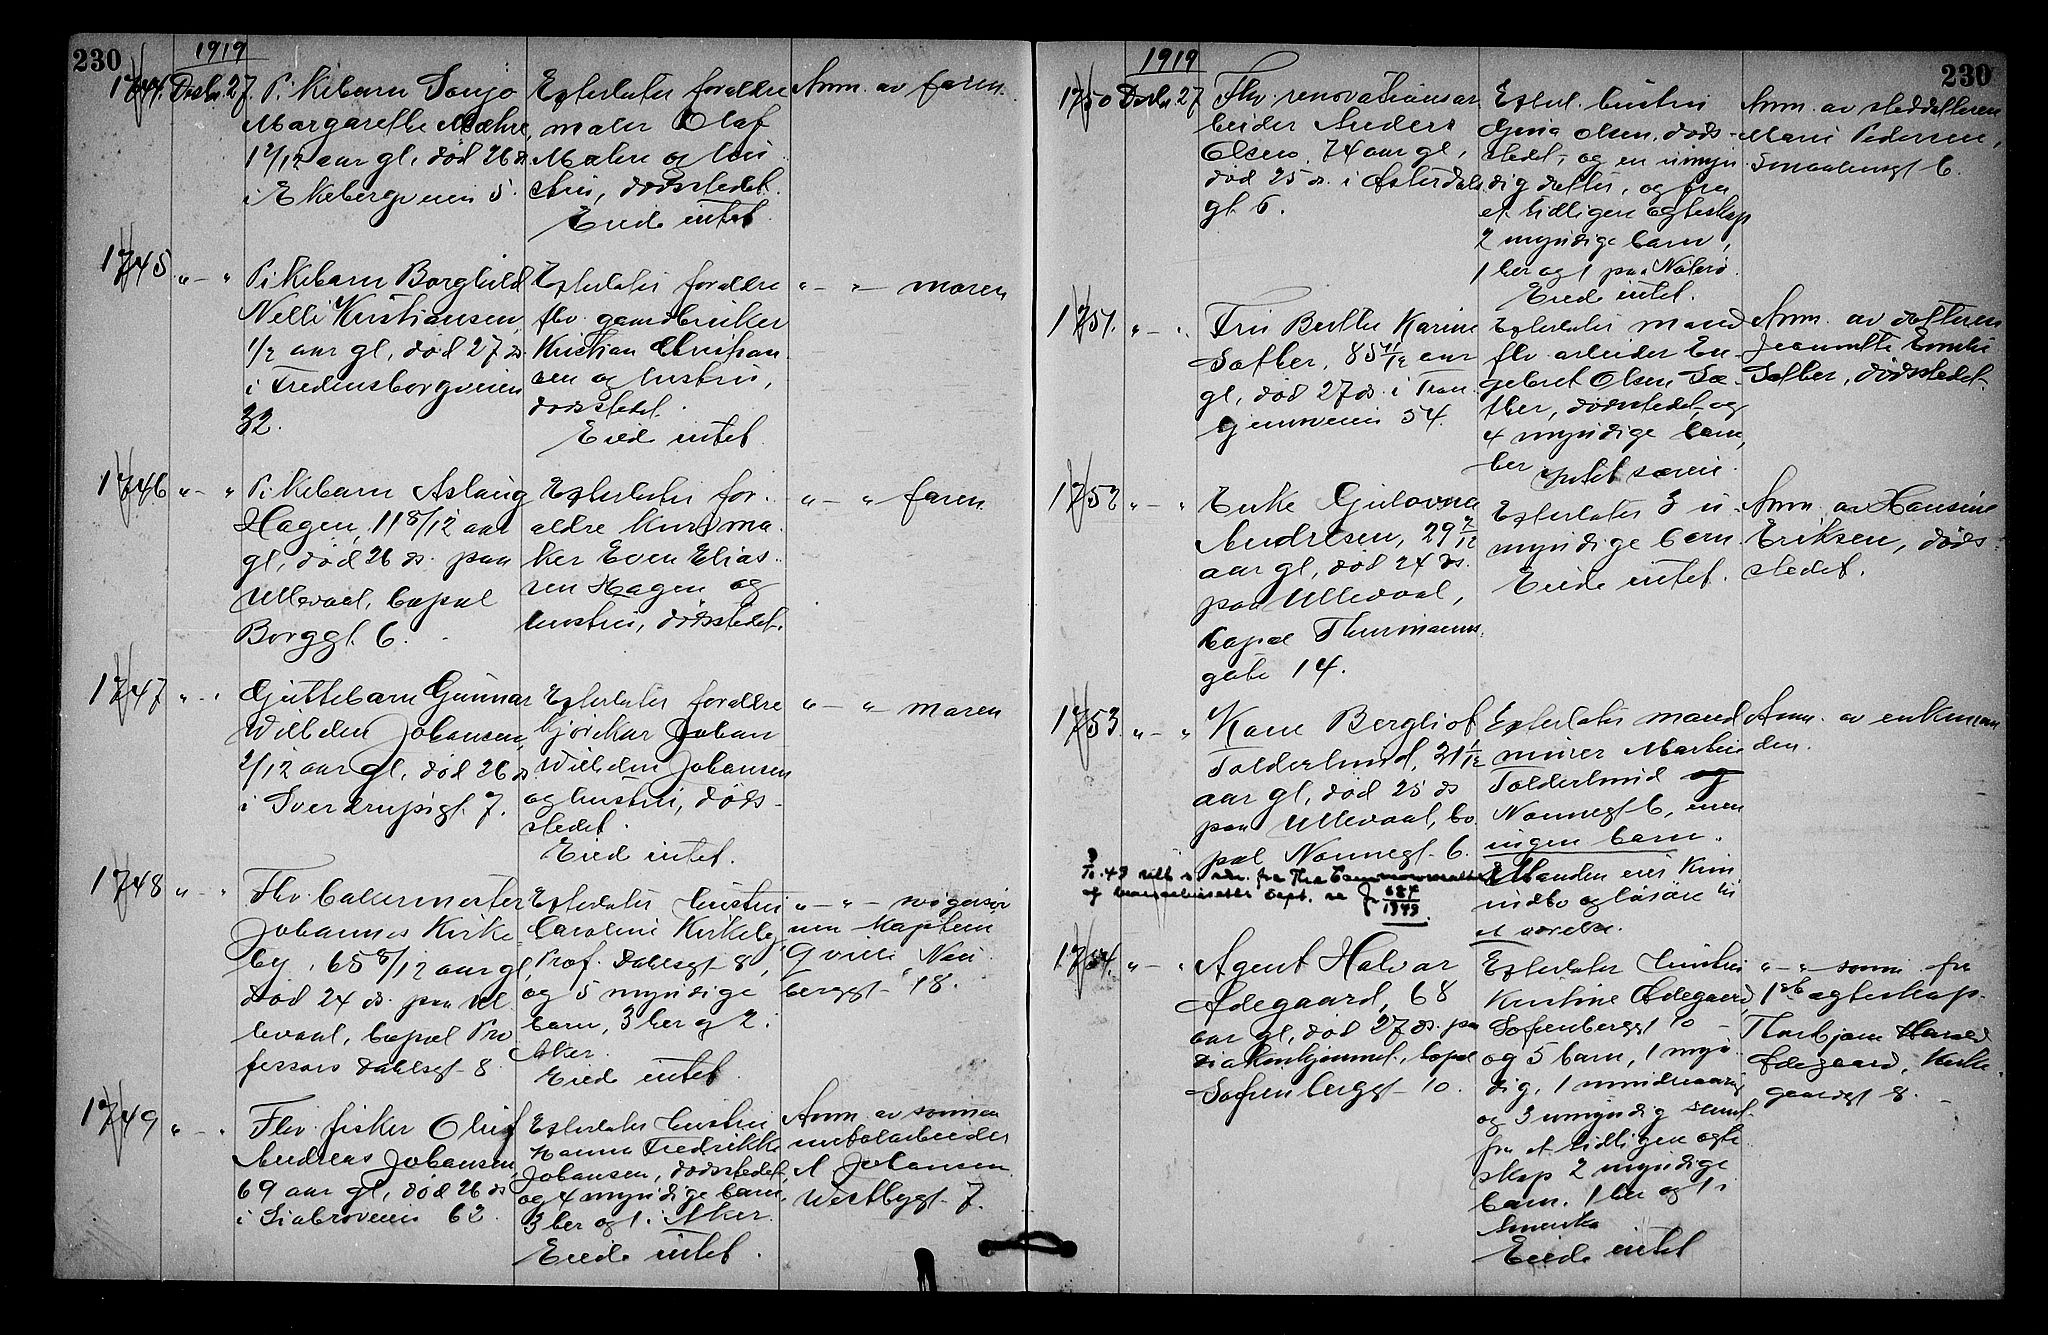 230
1919
1744. Desbr. 27
Pikebarn Sonja
Margarethe Mæhre,
1 2/12 aar gl, død 26 ds
i Ekebergveien 5.
Efterlater forældre
maler Olaf
Mæhre og hus
stru, dødsstedet.
Eiede intet.
Anm. av faren.
1745 " — "
Pikebarn Borghild
Nelli Kristiansen,
1/2 aar gl, død 27 ds
i Fredensborgveien
32.
Efterlater forældre
fhv. gaardbruker
Kristian Christian
sen og hustru,
dødsstedet.
Eiede intet.
" — " — moren
1746 " — "
Pikebarn Aslaug
Hagen, 11 8/12 aar
gl, død 26 ds. paa
Ullevaal, bopæl
Borggt. 6.
Efterlater for-
ældre kurvma-
ker Even Elias-
sen Hagen og
hustru, dødsstedet.
" — " faren.
1747 " — "
Guttebarn Gunnar
Wilhelm Johansen,
2/12 aar gl, død 26 ds
i Sverdrupsgt. 7.
Efterlater forældre
kjørekar Johan
Wilhelm Johansen
og hustru, døds-
stedet.
Eiede intet.
" — " — moren
1748 " — "
Fhv. bakermester
Johannes Kirke
by, 65 8/12 aar gl,
død 24 ds. paa Ul
levaal, bopæl Pro
fessors Dahlsgt 8.
Efterlater hustru
Caroline Kirkeby,
Prof. Dahlsgt 8,
og 5 myndige
barn, 3 her og 2 i
Aker.
Eiede intet.
" — " — svigersøn
nen kaptein
berggt. 18.
1749 " — "
Fhv. fisker Oluf
Andreas Johansen
69 aar gl, død 26 ds
i Ljabroveien 62.
Efterlater hustru
Hanna Fredrikke
Johansen, dødsstedet,
og 4 myndige barn,
3 her og 1 i Aker.
Eiede intet.
Anm. av sønnen
metalarbeider
A Johansen
Westbygt. 7.
230
1919
1750 Desbr. 27
Fhv. renovationsar
beider Anders
Olsen, 74 aar gl,
død 25 ds. i Østerdals
gt. 6.
Efterl. hustru
Gina Olsen, døds-
stedet, og en umyn
dig datter, og fra
et tidligere egteskap
2 myndige barn,
1 her og 1 paa Nøterø.
Eiede intet.
Anm. av steddatteren
Marie Pedersen,
Smaalensgt 6.
1751. " — "
Fru Berthe Karine
Sæther, 85 11/12 aar
gl, død 27 ds. i Tran
gjemsveien 54.
Efterlater mand
fhv. arbeider En-
gebret Olsen Sæ-
ther, dødsstedet, og
4 myndige barn,
her
Intet særeie.
Anm. av datteren
Jeanette Emilie
Sæther, dødsstedet.
1752 " — "
Enke
Andresen, 29 9/12
aar gl, død 24 ds.
paa Ullevaal,
bopæl Thurmanns
gate 14.
Efterlater 3 u-
myndige barn.
Eiede intet.
Anm. av Hansine
Eriksen, døds-
stedet.
1753. " — "
Kone Bergliot
Tolderlund, 21 1/12
aar gl, død 25 ds
paa Ullevaal, bo
pæl Nonnegt. 6.
Efterlater mand
murer Martin
Tolderlund og
Nonnegt 6, men
ingen barn.
Manden eier kun
indbo og løsøre til
et værelse.
Anm. av enkeman
den.
684
1949
1754. " — "
Agent Halvar
Ødegaard, 68
aar gl, død 27 ds. paa
Diakonhjemmet, bopæl
Sofienberggt 10.
Efterlater hustru
Kristine Ødegaard,
Sofienberggt 10 —
og 5 barn, 1 myn
dig, 1 mindreaarig
og 3 umyndig samt
fra et tidligere egte
skap 2 myndige
barn, 1 her og 1 i
Amerika
Eiede intet
" — " sønn fra
1ste egteskap.
Thorbjørn Harald
Ødegaard, Kirke-
gaardsgt 8.